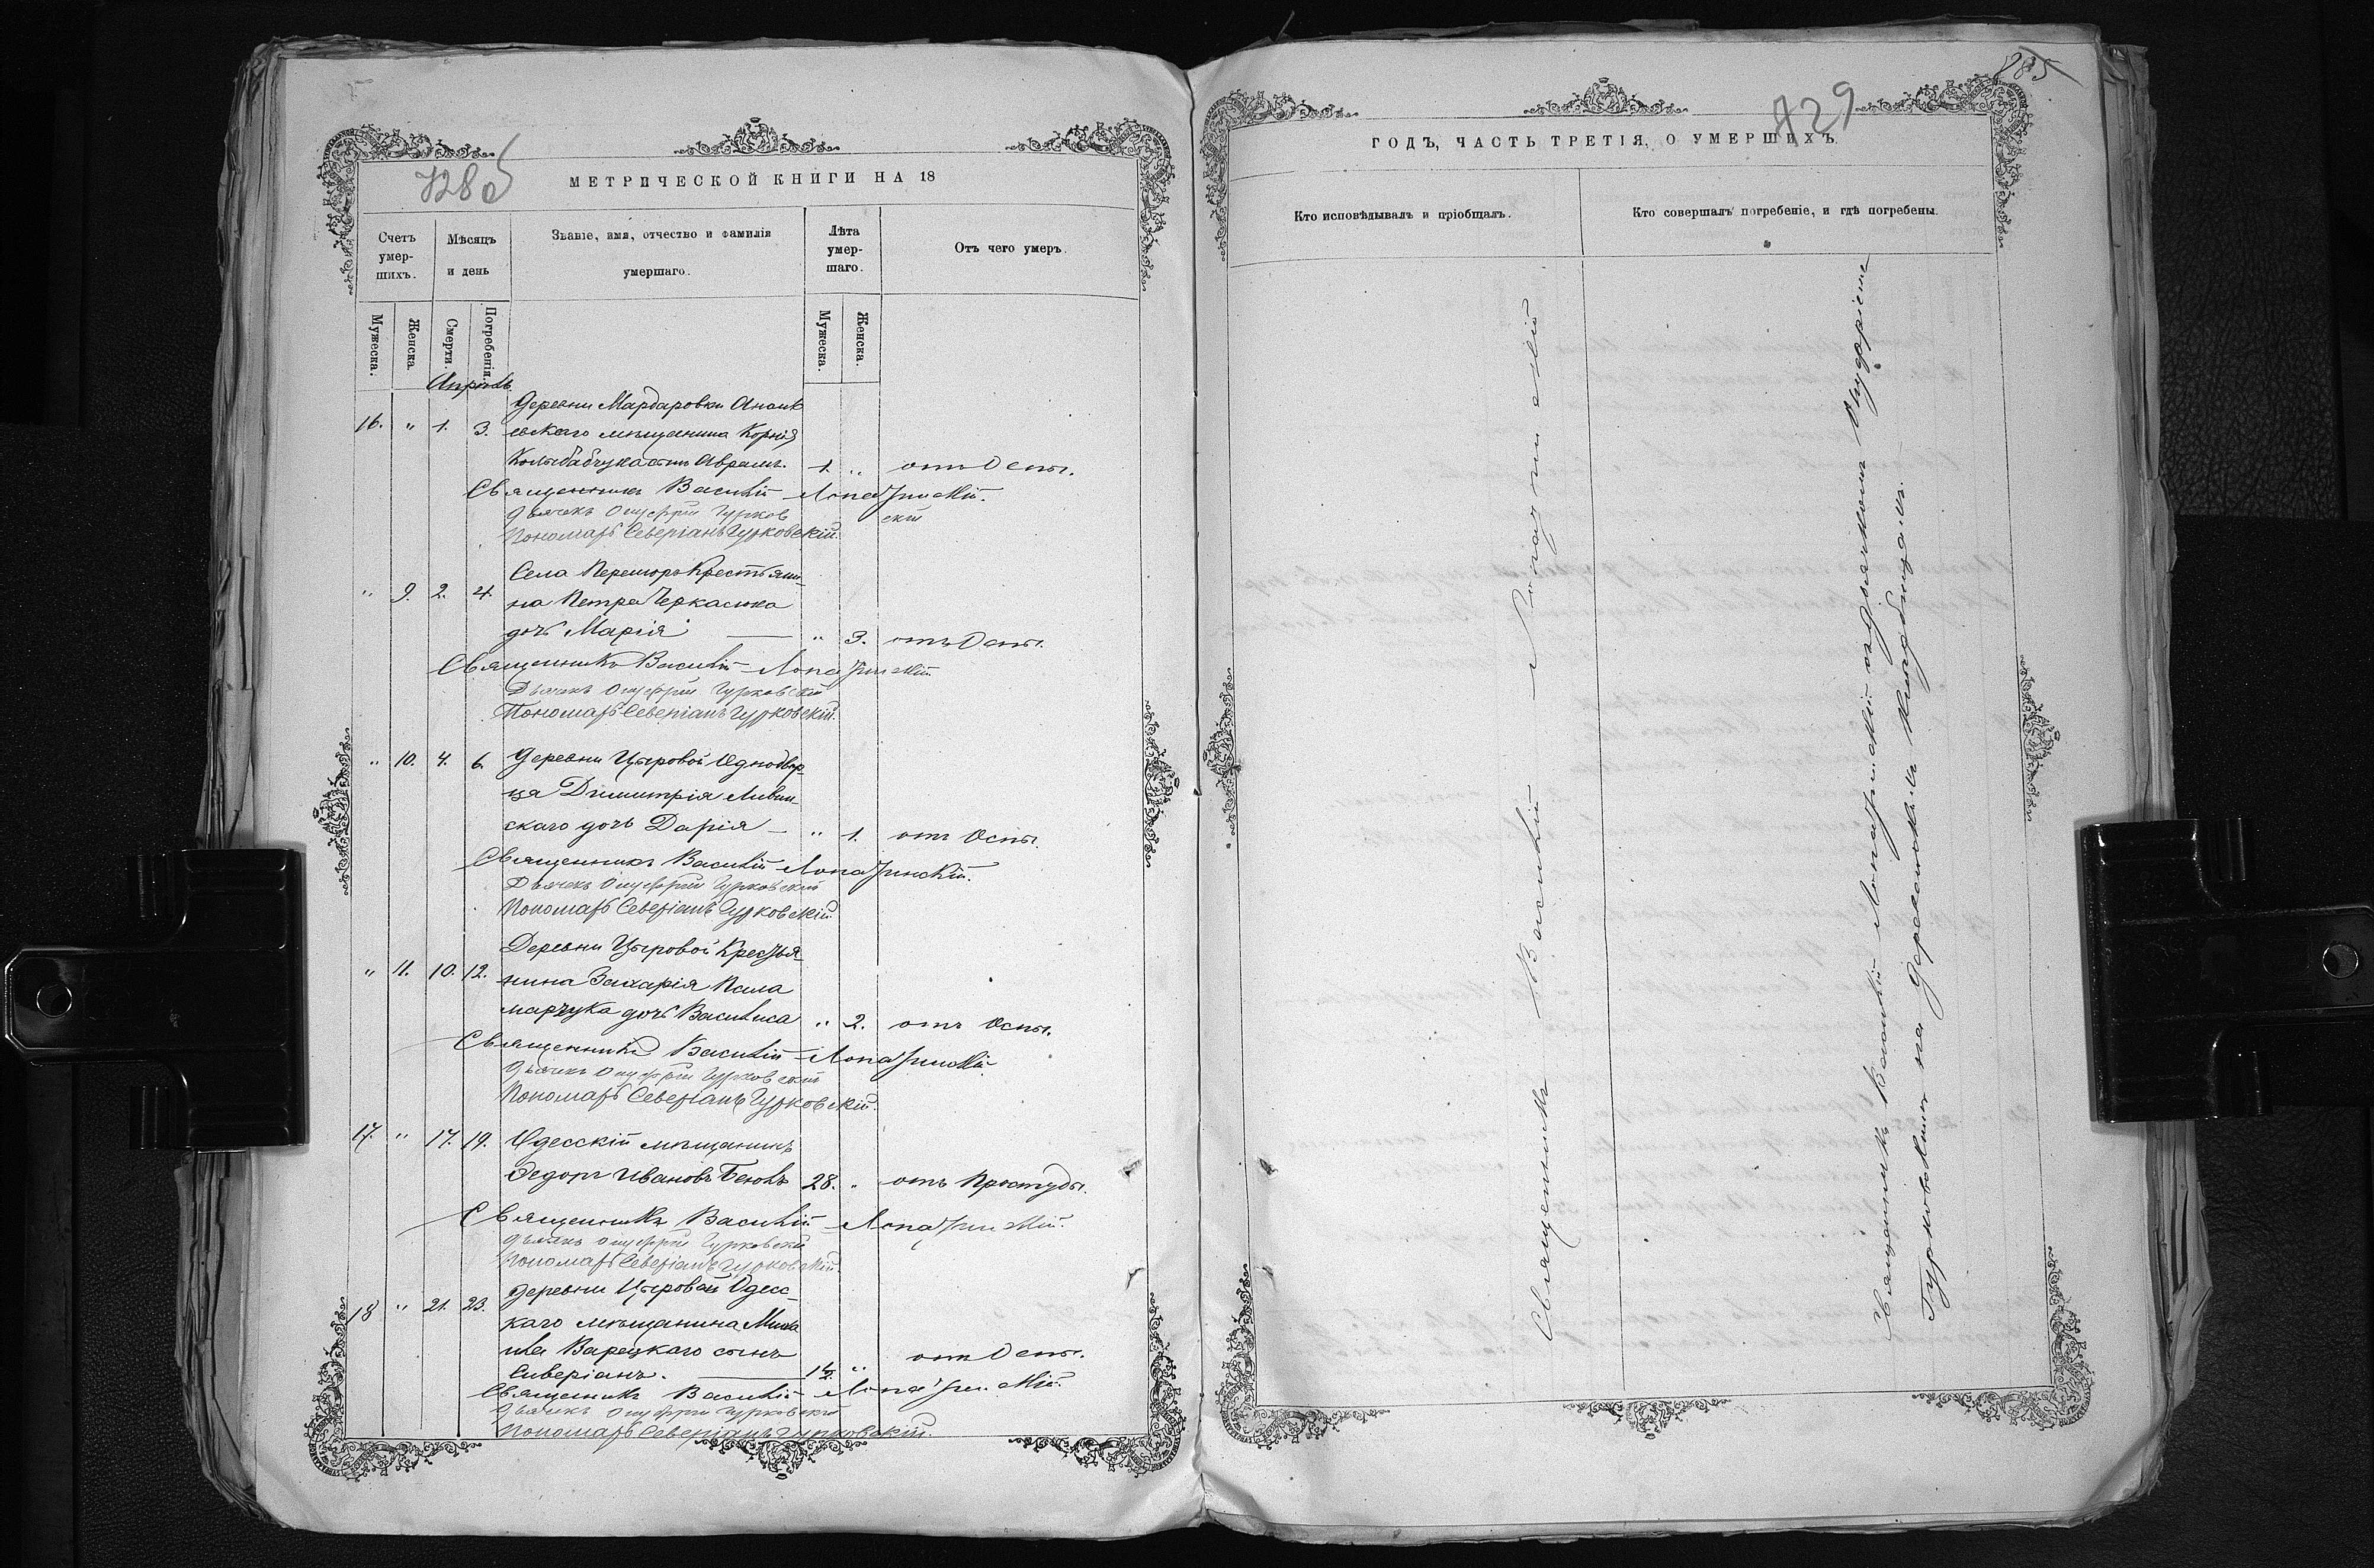 728 об
МЕТРИЧЕСКОЙ КНИГИ НА 18
Счетъ умер-шихъ.
Мѣсяцъ и день
Званіе, имя, отчество и фамилія умершаго.
Лѣта умер-шаго.
Отъ чего умеръ.
Мужеска.
Женска.
Смерти.
Погребенія.
Мужеска.
Женска.
Апрѣль.
Деревни Мардаровки Анань
16. " 1. 3. евскаго мѣщанина Корнія
сынъ Аврамъ. 1. " отъ Оспы.
Священникъ Василій Лопатинскій.
Дьячекъ Онуфрій Гурков
скій
Пономарь Северіанъ Гурковскій.
Села Перешоръ Крестьяни-
" 9. 2. 4. на Петра Черкасюка
дочь Марія — " 3. отъ Оспы.
Священникъ Василій Лопатинскій
Дьячекъ Онуфрій Гурковскій
Пономарь Северіанъ Гурковскій.
" 10. 4. 6. Деревни Цыровой Однодвор-
ца Димитрія Ливин-
скаго дочь Дарія — " 1. отъ Оспы.
Священникъ Василій Лопатинскій.
Дьячекъ Онуфрій Гурковскій
Пономарь Северіанъ Гурковскій
Деревни Цыровой Крестья-
" 11. 10. 12. нина Захарія Пала
марчука дочь Василиса " 2. отъ Оспы.
Священникъ Василій Лопатинскій
Дьячекъ Онуфрій Гурковскій
Пономарь Северіанъ Гурковскій.
17. " 17. 19. Одесскій мѣщанинъ
Федоръ Ивановъ 28. " отъ Простуды.
Священникъ Василій Лопатинскій.
Дьячекъ Онуфрій Гурковскій
Пономарь Северіанъ Гурковскій.
Деревни Цыровой Одесс-
18 " 21. 23. каго мѣщанина Миха
ила Варецкаго сынъ
Сиверіанъ. — 1/2 " отъ Оспы.
Священникъ Василій Лопатинскій.
Дьячекъ Онуфрій Гурковскій
Пономарь Северіанъ Гурковскій.
285
729
ГОДЪ, ЧАСТЬ ТРЕТІЯ, О УМЕРШИХЪ.
Кто исповѣдывалъ и пріобщалъ.
Кто совершалъ погребеніе, и гдѣ погребены.
Священникъ Василій Лопатинскій
Священникъ Василій Лопатинскій съ дьячкомъ Онуфріемъ
Гурковскимъ на деревенскомъ кладбищѣ.